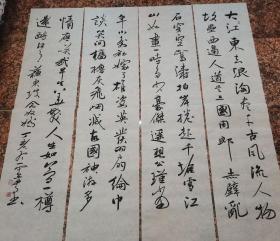 大江東去浪淘盡千古風流人物
故壘西邊人道是三國周郎赤壁亂
石穿空驚濤拍岸捲起千堆雪江
山如畫一時多少豪傑遙想公瑾當
年小喬初嫁了雄姿英發羽扇綸巾
談笑間檣櫓灰飛煙滅故國神遊多
情應笑我早生華髮人生如夢一樽
還酹江月蘇東坡念奴嬌丁亥